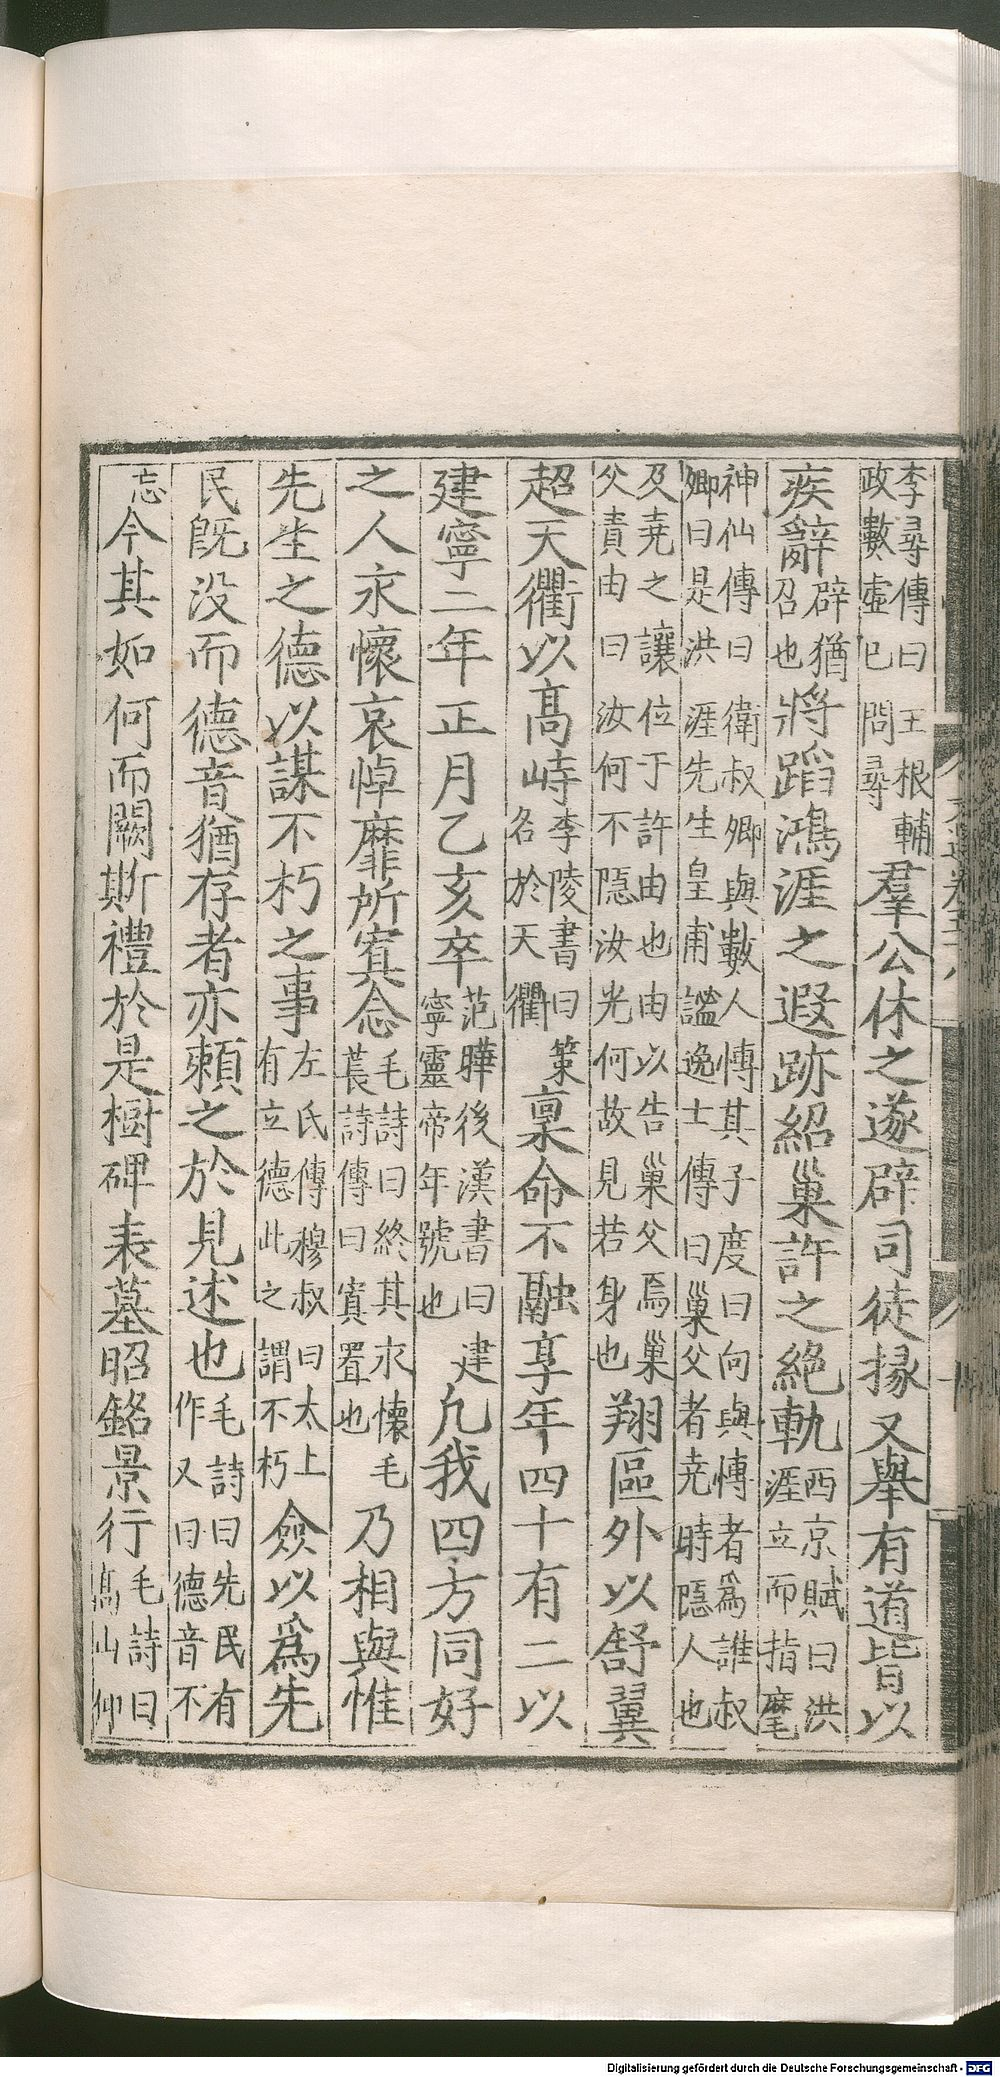 李尋傳曰王根輔
政數虛已問尋
羣公休之遂辟司徒掾又舉有道皆以
疾辭
辟猶
召也
將蹈鴻涯之遐跡紹巢許之絶軌
西京賦曰洪
涯立而指麾
神仙傳曰衛叔卿與數人愽其子度曰向與愽者爲誰叔
卿曰是洪涯先生皇甫謐逸士傳曰巢父者尭時隱人也
及尭之讓位于許由也由以告巢父焉巢
父責由曰汝何不隱汝光何故見若身也
翔區外以舒翼
超天衢以高峙
李陵書曰策
名於天衢
稟命不融享年四十有二以
建寧二年正月乙亥卒
范曄後漢書曰建
寧靈帝年號也
凡我四方同好
之人永懷哀悼靡所寘念
毛詩曰終其永懷毛
萇詩傳曰寘置也
乃相與惟
先生之德以謀不朽之事
左氏傳穆叔曰太上
有立德此之謂不朽
僉以爲先
民旣没而德音猶存者亦頼之於見述也
毛詩曰先民有
作又曰德音不
忘
今其如何而闕斯禮於是樹碑表墓昭銘景行
毛詩曰
高山仰
Digitalisierung gefördert durch die Deutsche Forschungsgemeinschaft - DFG